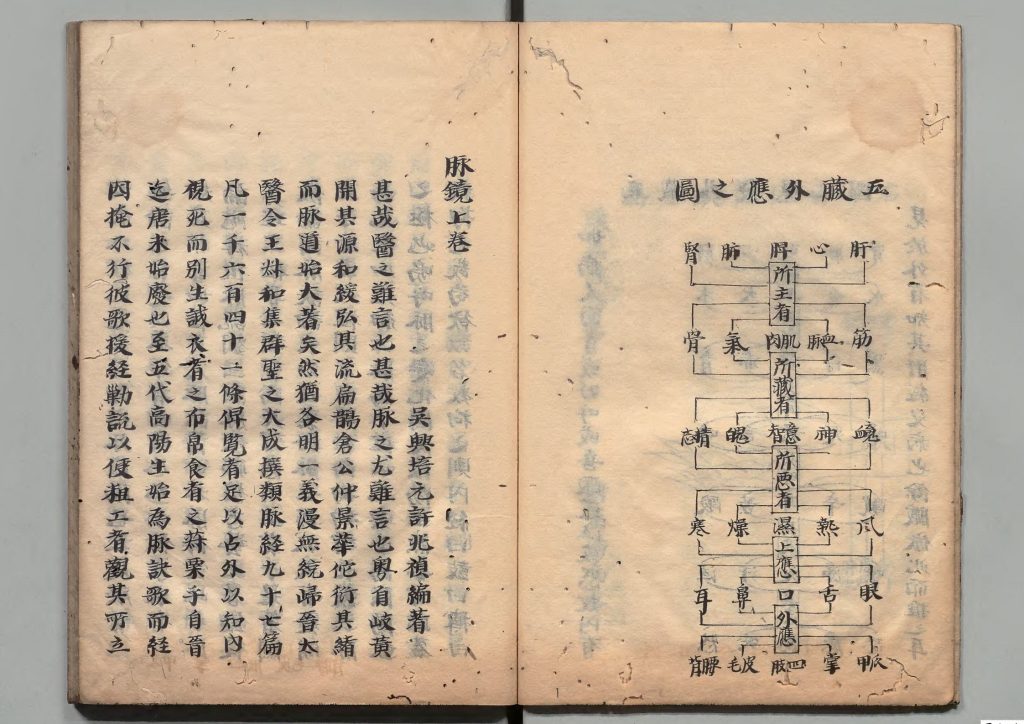 五臟外應之圖
肝 心 脾 肺 腎
所主者
筋 血脉 肌肉 氣 骨
所藏者
魂 神 意智 魄 精志
所惡者
風 熱 濕 燥 寒
上應
眼 舌 口 鼻 耳
外應
爪甲 掌 四肢 皮毛 腰背
脉鏡上卷
吳興培元許兆禎編著
甚哉醫之難言也甚哉脉之尤難言也粵自岐黃
開其源和緩弘其流扁鵲倉公仲景華佗衍其緒
而脉道始大著矣然猶各明一義漫無統歸晉太
醫令王叔和集群聖之大成撰類脉經九十七篇
凡一千六百四十二條俾覽者足以占外以知內
視死而別生誠衣者之布帛食者之菽粟乎自晉
迄唐未始廢也至五代高陽生始為脉訣歌而經
因掩不行彼歌援經勦說以便粗工者觀其所立